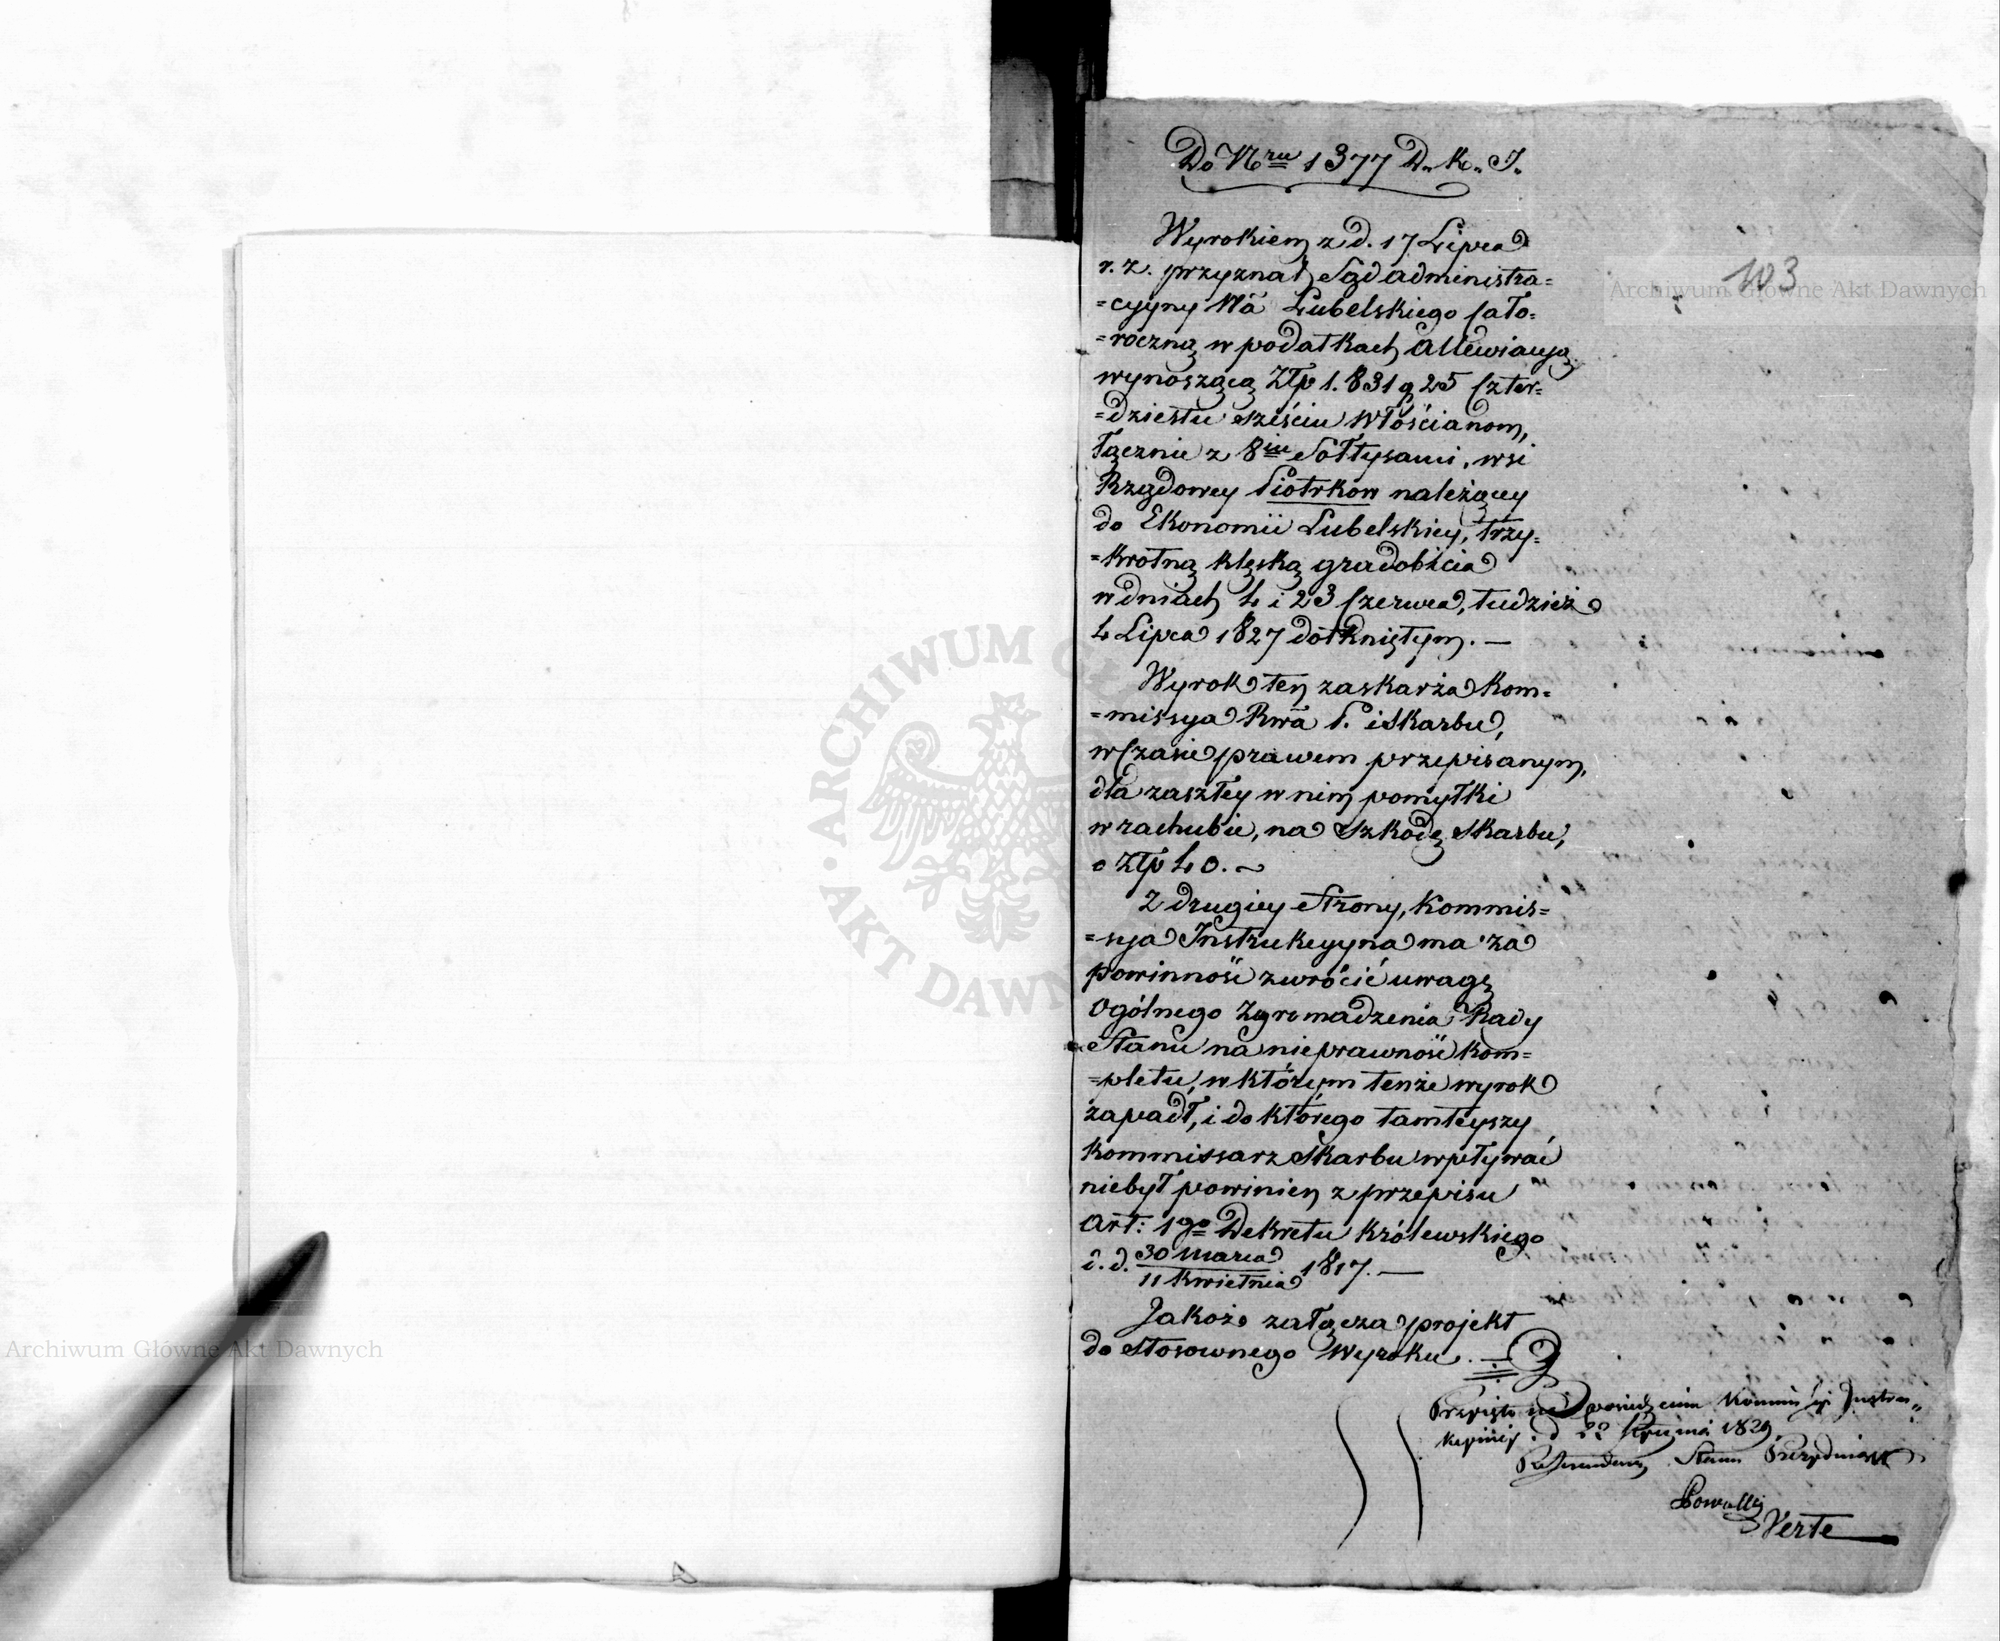 Do Nru 1377 D. K. I.
103
Wyrokiem z d. 17 Lipca
r. z. przyznał Sąd administra=
=cyyny Wa Lubelskiego Cało=
=roczną w podatkach allewiacyą
wynoszącą Złp 1.831 g 25 Czter=
=dziestu sześciu Włościanom,
łącznie z 8iu Sołtysami, wsi
Rządowey Piotrkow należącey
do Ekonomii Lubelskiey, trzy=
=krotną klęską gradobicia
w dniach 4 i 23 Czerwca, tudzież
4 Lipca 1827 dotkniętym. —
Wyrok ten zaskarża Kom=
=missya Rwa P. i Skarbu,
w Czasie prawem przepisanym,
dla zaszłey w nim pomyłki
w rachubie, na szkodę Skarbu,
o Złp 40. ~
Z drugiey Strony, Kommis=
=sya Instrukcyyna ma za
powinność zwrócić uwagę
Ogólnego Zgromadzenia Rady
Stanu na nieprawność kom=
=pletu, w którym tenże wyrok
zapadł, i do którego tamteyszy
Kommissarz Skarbu wpływać
niebył powinien z przepisu
Art: 1go Dekretu Królewskiego
d. d. 30 Marca / 11 Kwietnia 1817. —
Jakoż załącza projekt
do Stosownego Wyroku. —
Przyięto na Posiedzeniu Kommissyi Instru=
kcyiney d. 22 Stycznia 1829
Referendarz Stanu Prezyduiący
Verte
Archiwum Główne Akt Dawnych
Archiwum Główne Akt Dawnych
ARCHIWUM GŁÓWNE AKT DAWNYCH